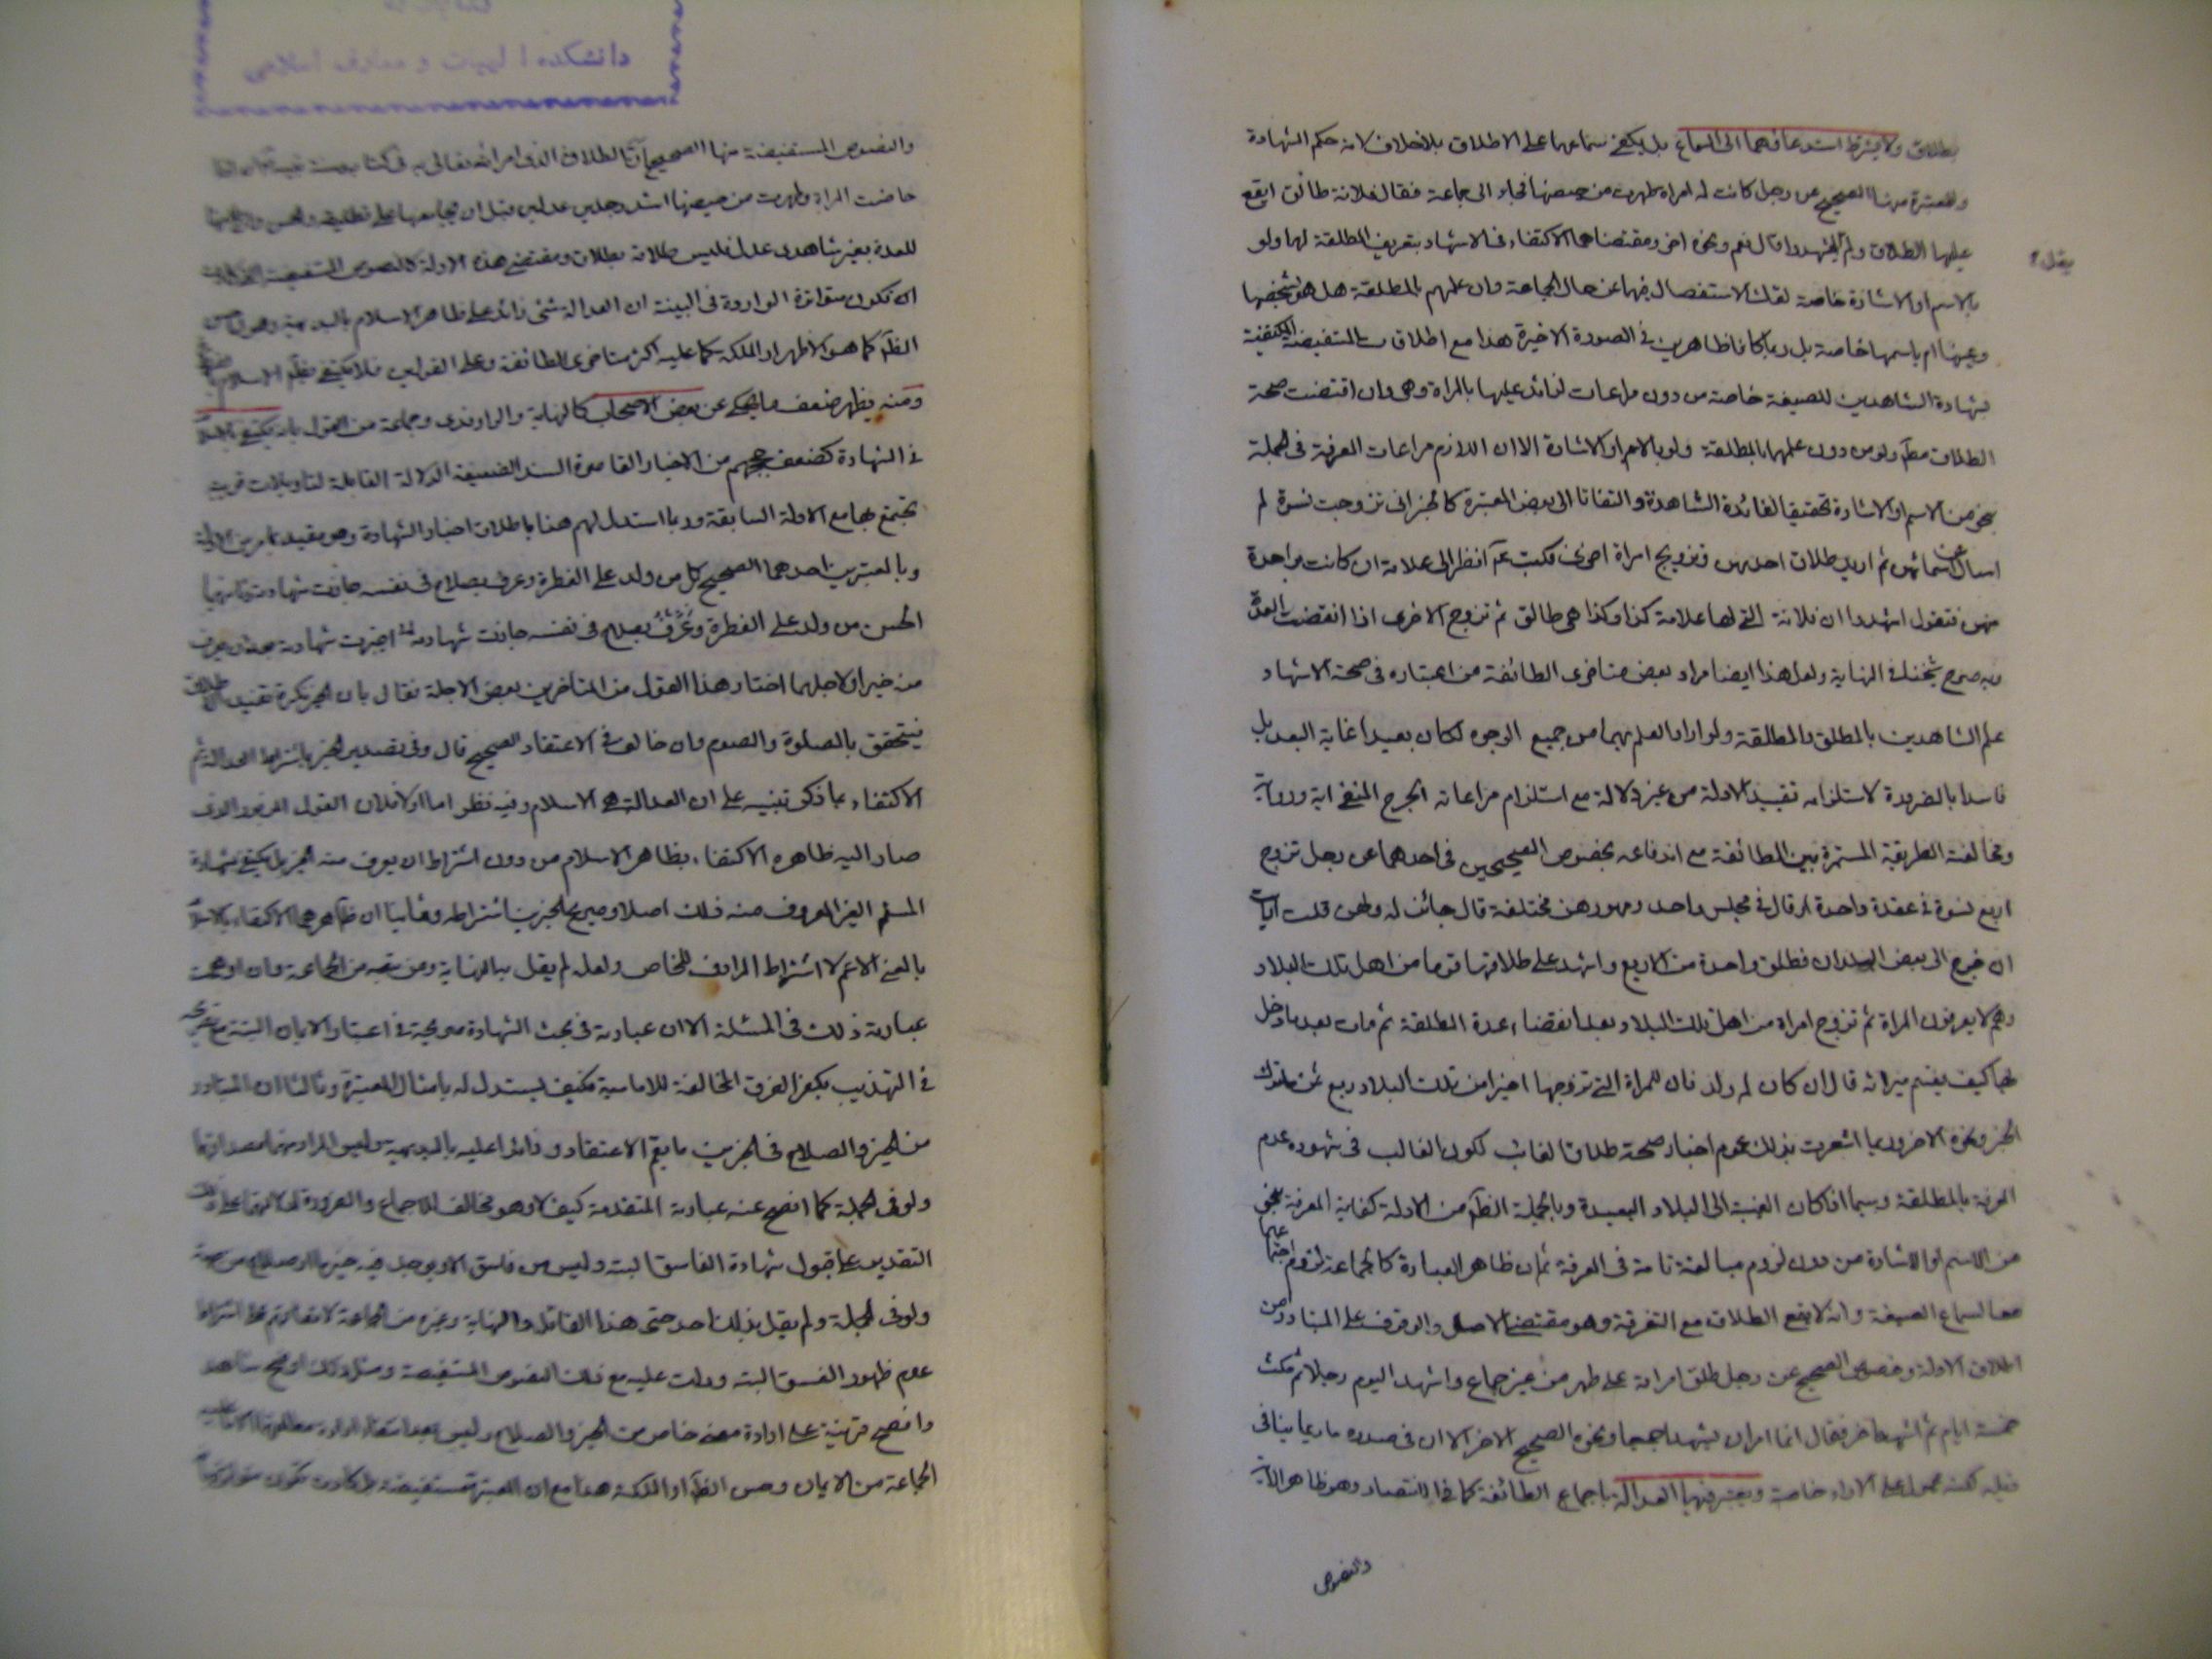 بطلاق ولا يشترط استدعاؤهما الى السماع بل يكفى سماعهما على الاطلاق بلا خلاف لانه حكم الشهادة
وللمعتبرة منها الصحيح عن رجل كانت له امراة طهرت من حيضها فجاء الى جماعة فقال فلانة طالق ايقع
عليها الطلاق ولم يقل اشهدوا قال نعم ونحوه اخر ومقتضاها الاكتفاء فى الاشهاد بتعريف المطلقة لها ولو
يقل
بالاسم او الاشارة خاصة لترك الاستفصال فيها عن حال الجماعة وان علمهم بالمطلقة هل هو بشخصها
وعينها ام باسمها خاصة بل ربما كانا ظاهرين فى الصورة الاخيرة هذا مع اطلاقات المستفيضة المكتفية
بشهادة الشاهدين للصيغة خاصة من دون مراعات لزائد عليها بالمراة وهى وان اقتضت صحة
الطلاق مطلقا ولو من دون علمهما بالمطلقة ولو بالاسم او الاشارة الا ان اللازم مراعات المعرفة فى الجملة
بنحو من الاسم او الاشارة تحقيقا لفائدة الشاهدة والتفاتا الى بعض المعتبرة كالخبر انى تزوجت نسوة لم
اسال عن اسمائهن ثم اريد طلاق احديهن وتزويج امراة اخرى فكتب انظر الى علامة ان كانت بواحدة
منهن فتقول اشهدوا ان فلانة التى لها علامة كذا وكذا هى طالق ثم تزوج الاخرى اذا انقضت العدة
وبه صرح شيخنا فى النهاية ولعل هذا ايضا مراد بعض متاخرى الطائفة من اعتباره فى صحة الاشهاد
علم الشاهدين بالمطلق والمطلقة ولو اراد العلم بهما من جميع الوجوه لكان بعيدا غاية البعد بل
فاسدا بالضرورة لاستلزامه تقييد الادلة من غير دلالة مع استلزام مراعاته الحرج المنفى اية ورواية
ومخالفة الطريقة المستمرة بين الطائفة مع اندفاعه بخصوص الصحيحين فى احدهما عن رجل تزوج
اربع نسوة فى عقدة واحدة او قال فى مجلس واحد ومهورهن مختلفة قال جائز له ولهن قلت ارايت
ان خرج الى بعض البلدان فطلق واحدة من الاربع واشهد على طلاقها قوما من اهل تلك البلاد
وهم لا يعرفون المراة ثم تزوج امراة من اهل تلك البلاد بعد انقضاء عدة المطلقة ثم مات بعد ما دخل
بها كيف يقسم ميراثه قال ان كان له ولد فان للمراة التى تزوجها اخيرا من تلك البلاد ربع ثمن ما ترك
الخبر ونحوه الاخر وربما اشعرت بذلك عموم اخبار صحة طلاق الغائب لكون الغالب فى شهوده عدم
المعرفة بالمطلقة وسيما اذا كان الغيبة الى البلاد البعيدة وبالجملة الظاهر من الادلة كفاية المعرفة بنحو
من الاسم او الاشارة من دون لزوم مبالغة تامة فى المعرفة ثم ان ظاهر العبارة كالجماعة لزوم اجتماعهما
معا لسماع الصيغة وانه لا يقع الطلاق مع التفرقة وهو مقتضى الاصل والوقوف على المتبادر من
اطلاق الادلة وخصوص الصحيح عن رجل طلق امراته على طهر من غير جماع واشهد اليوم رجلا ثم مكث
خمسة ايام ثم اشهد اخر فقال انما امر ان يشهدا جميعا ونحوه الصحيح الاخر الا ان فى صدره ما ربما ينافى
ذيله لكنه محمول على الاداء خاصة ويعتبر فيهما العدالة باجماع الطائفة كما فى الانتصار وهو ظاهر الاية
والنصوص
دانشكده الهيات و معارف اسلامى
والنصوص المستفيضة منها الصحيح ان الطلاق الذى امر الله تعالى به فى كتابه
حاضت المراة وطهرت من حيضها اشهد رجلين عدلين قبل ان يجامعها على تطليقة والحسن
للعدة بغير شاهدى عدل فليس طلاقه بطلاق ومقتضى هذه الادلة كالنصوص المستفيضة
ان تكون متواترة الواردة فى البينة ان العدالة شئ زائد على ظاهر الاسلام بالبديهية وهو حسن
الظاهر كما هو الاظهر او الملكة كما عليه اكثر متاخرى الطائفة وعلى القولين فلا يكتفى بظاهر الاسلام
ومنه يظهر ضعف ما يحكى عن بعض الاصحاب كالنهاية والراوندى وجماعة من القول بانه يكتفى بالاسلام
فى الشهادة كضعف حججهم من الاخبار القاصرة السند الضعيفة الدلالة القابلة لتاويلات قريبة
تجتمع بها مع الادلة السابقة وربما استدل لهم هنا باطلاق اخبار الشهادة وهو مقيد بما مر من الادلة
وبالمعتبرين احدهما الصحيح كل من ولد على الفطرة وعرف بصلاح فى نفسه جازت شهادته وثانيهما
الحسن من ولد على الفطرة وعرف بصلاح فى نفسه جازت شهادته اجيزت شهادته
منه خير ولاجلهما اختار هذا القول من المتاخرين بعض الاجلة فقال بان الخبر نكرة تفيد الاطلاق
فيتحقق بالصلوة والصوم وان خالف فى الاعتقاد الصحيح قال وفى تصدير الخبر باشتراط العدالة ثم
الاكتفاء بما ذكر تنبيه على ان العدالة هى الاسلام وفيه نظر اما اولا فلان القول المزبور الذى
صار اليه ظاهره الاكتفاء بظاهر الاسلام من دون اشتراط ان يعرف منه الخير بل يكتفى بشهادة
المسلم الغير المعروف منه ذلك اصلا وصريح الخبرين اشتراطه وثانيا ان ظاهرهما الاكتفاء بالاسلام
بالمعنى الاعم لا اشتراط المرادف للخاص ولعله لم يقل به النهاية ومن تبعه من الجماعة وان اوهمت
عبارته ذلك فى المسئلة الا ان عبارته فى بحث الشهادة صريحة فى اعتبار الايمان البتة مع تصريحه
فى التهذيب بكفر الفرق المخالفة للامامية فكيف يستدل له بامثال المعتبرة وثالثا ان المتبادر
من الخير والصلاح فى الخبرين ما يعم الاعتقاد وزائدا عليه بالبديهية وليس المراد منهما مصداقهما
ولو فى الجملة كما افصح عنه عبارته المتقدمة كيف لا وهو مخالف للاجماع والضرورة لدلالتهما على ذلك
التقدير على قبول شهادة الفاسق البتة وليس من فاسق الا ويوجد فيه خير ما وصلاح من جهة
ولو فى الجملة ولم يقل بذلك احد حتى هذا القائل والنهاية وغيره من الجماعة لاتفاقهم على اشتراط
عدم ظهور الفسق البتة ودلت عليه مع ذلك النصوص المستفيضة ومثل ذلك اوضح شاهد
وافصح قرينة على ارادة معنى خاص من الخير والصلاح وليس بعد انتفاء ارادة مطلقهما الا ما عليه
الجماعة من الايمان وحسن الظاهر او الملكة هذا مع ان المعتبرة مستفيضة بل كادت تكون متواترة